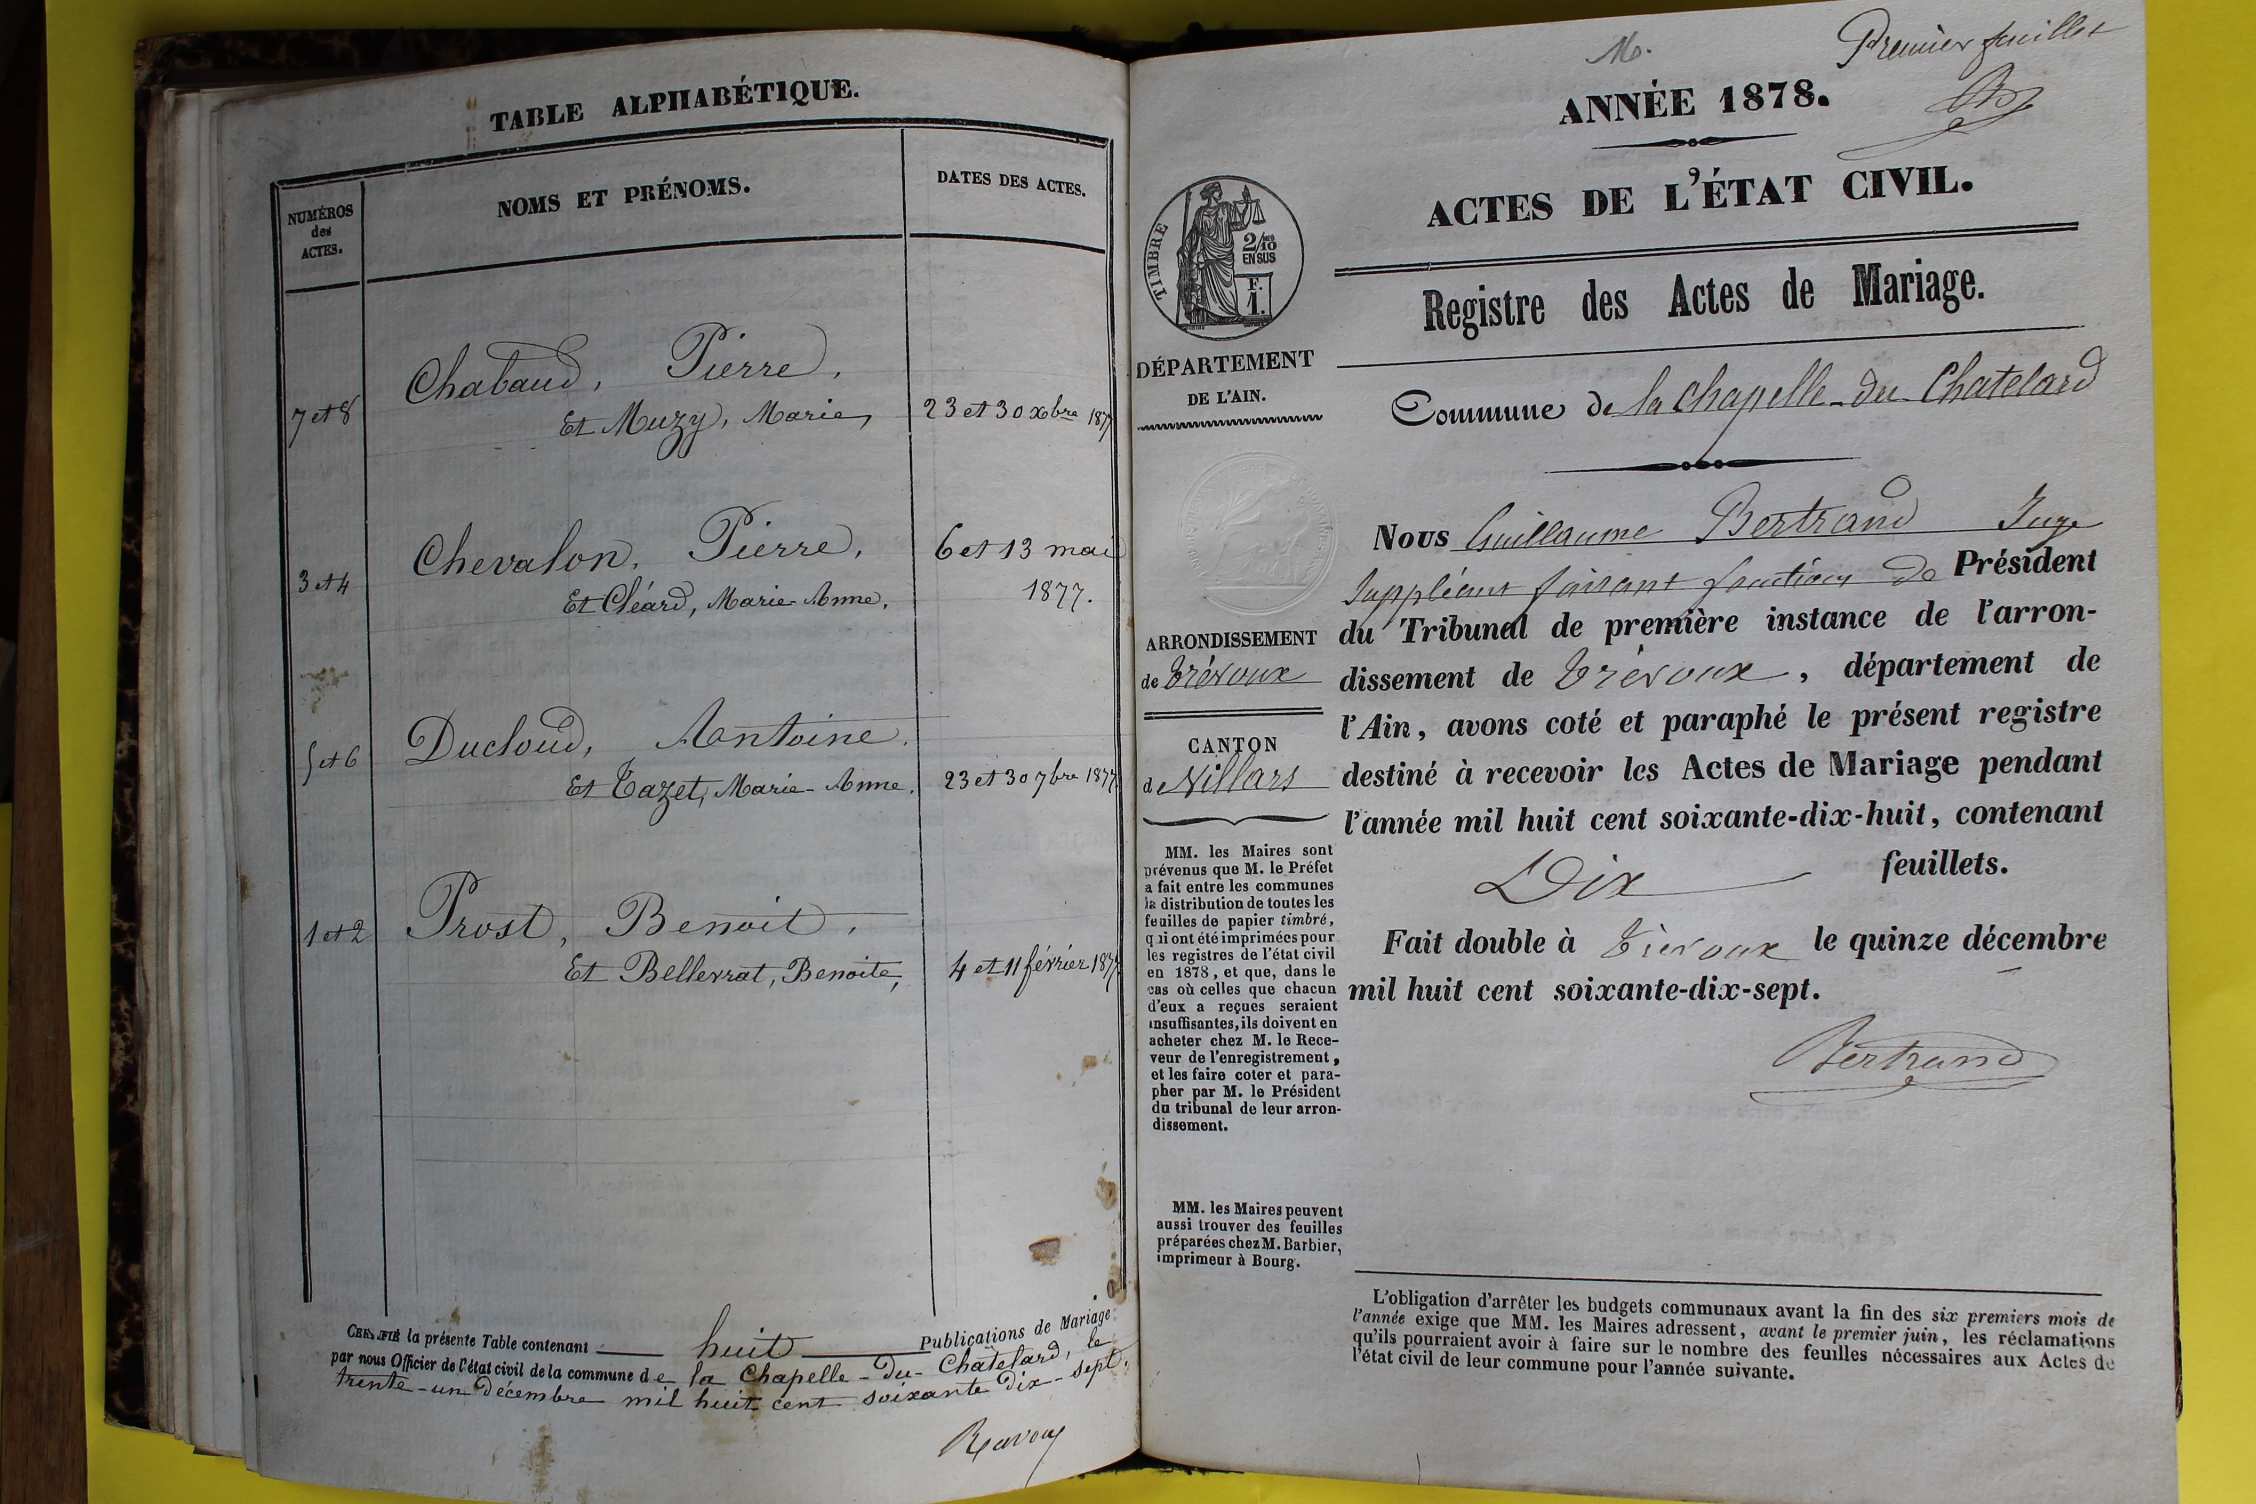 TABLE ALPHABÉTIQUE.
NUMÉROS
des
ACTES.
NOMS ET PRÉNOMS.
DATES DES ACTES.
7 et 8
Chabaud, Pierre,
Et Muzy, Marie,
23 et 30 xbre 1877
3 et 4
Chevalon, Pierre,
Et Cléard, Marie-Anne.
6 et 13 mai
1877.
5 et 6
Ducloud, Antoine.
Et Tazet, Marie-Anne.
23 et 30 7bre 1877
1 et 2
Prost, Benoit,
Et Bellevrat, Benoite,
4 et 11 février 1877
CERTIFIÉ la présente Table contenant huit Publications de Mariage
par nous Officier de l'état civil de la commune de la Chapelle-du-Châtelard, le
trente-un décembre mil huit cent soixante dix-sept.
M.
Premier feuillet
ANNÉE 1878.
ACTES DE L'ÉTAT CIVIL.
Registre des Actes de Mariage.
Commune de la Chapelle-du-Chatelard
TIMBRE
2/10
EN SUS
F.
1.
DÉPARTEMENT
DE L'AIN.
ARRONDISSEMENT
de Trévoux
CANTON
de Villars
MM. les Maires sont
prévenus que M. le Préfet
a fait entre les communes
la distribution de toutes les
feuilles de papier timbré,
qui ont été imprimées pour
les registres de l'état civil
en 1878, et que, dans le
cas où celles que chacun
d'eux a reçues seraient
insuffisantes, ils doivent en
acheter chez M. le Rece-
veur de l'enregistrement,
et les faire coter et para-
pher par M. le Président
du tribunal de leur arron-
dissement.
MM. les Maires peuvent
aussi trouver des feuilles
préparées chez M. Barbier,
imprimeur à Bourg.
Nous Guillaume Bertrand Juge
Suppléant faisant fonctions de Président
du Tribunal de première instance de l'arron-
dissement de Trévoux, département de
l'Ain, avons coté et paraphé le présent registre
destiné à recevoir les Actes de Mariage pendant
l'année mil huit cent soixante-dix-huit, contenant
Dix feuillets.
Fait double à Trévoux le quinze décembre
mil huit cent soixante-dix-sept.
Bertrand
L'obligation d'arrêter les budgets communaux avant la fin des six premiers mois de
l'année exige que MM. les Maires adressent, avant le premier juin, les réclamations
qu'ils pourraient avoir à faire sur le nombre des feuilles nécessaires aux Actes de
l'état civil de leur commune pour l'année suivante.